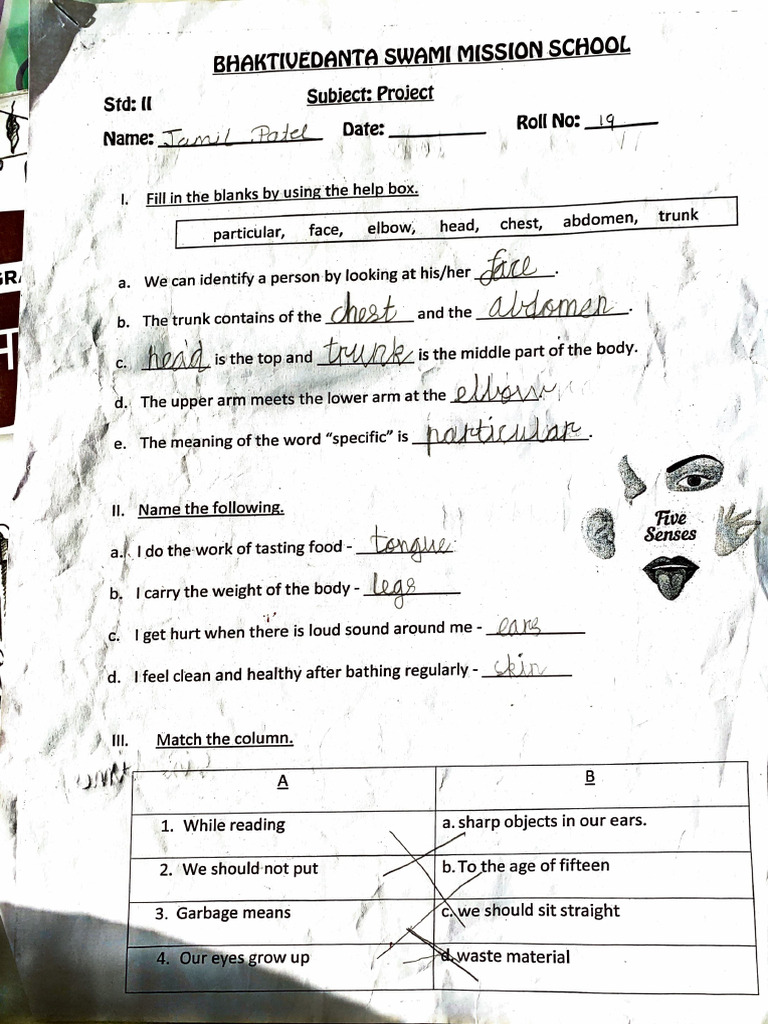 BHAKTIVEDANTA SWAMI MISSION SCHOOL
Std: II Subject: Project
Name: Jamil Patel Date: ________ Roll No: 19
I. Fill in the blanks by using the help box.
particular, face, elbow, head, chest, abdomen, trunk
a. We can identify a person by looking at his/her face.
b. The trunk contains of the chest and the abdomen.
c. head is the top and trunk is the middle part of the body.
d. The upper arm meets the lower arm at the elbow.
e. The meaning of the word “specific” is particular.
II. Name the following.
a. I do the work of tasting food - tongue
b. I carry the weight of the body - legs
c. I get hurt when there is loud sound around me - ears
d. I feel clean and healthy after bathing regularly - skin
Five
Senses
III. Match the column.
A B
1. While reading a. sharp objects in our ears.
2. We should not put b. To the age of fifteen
3. Garbage means c. we should sit straight
4. Our eyes grow up d. waste material